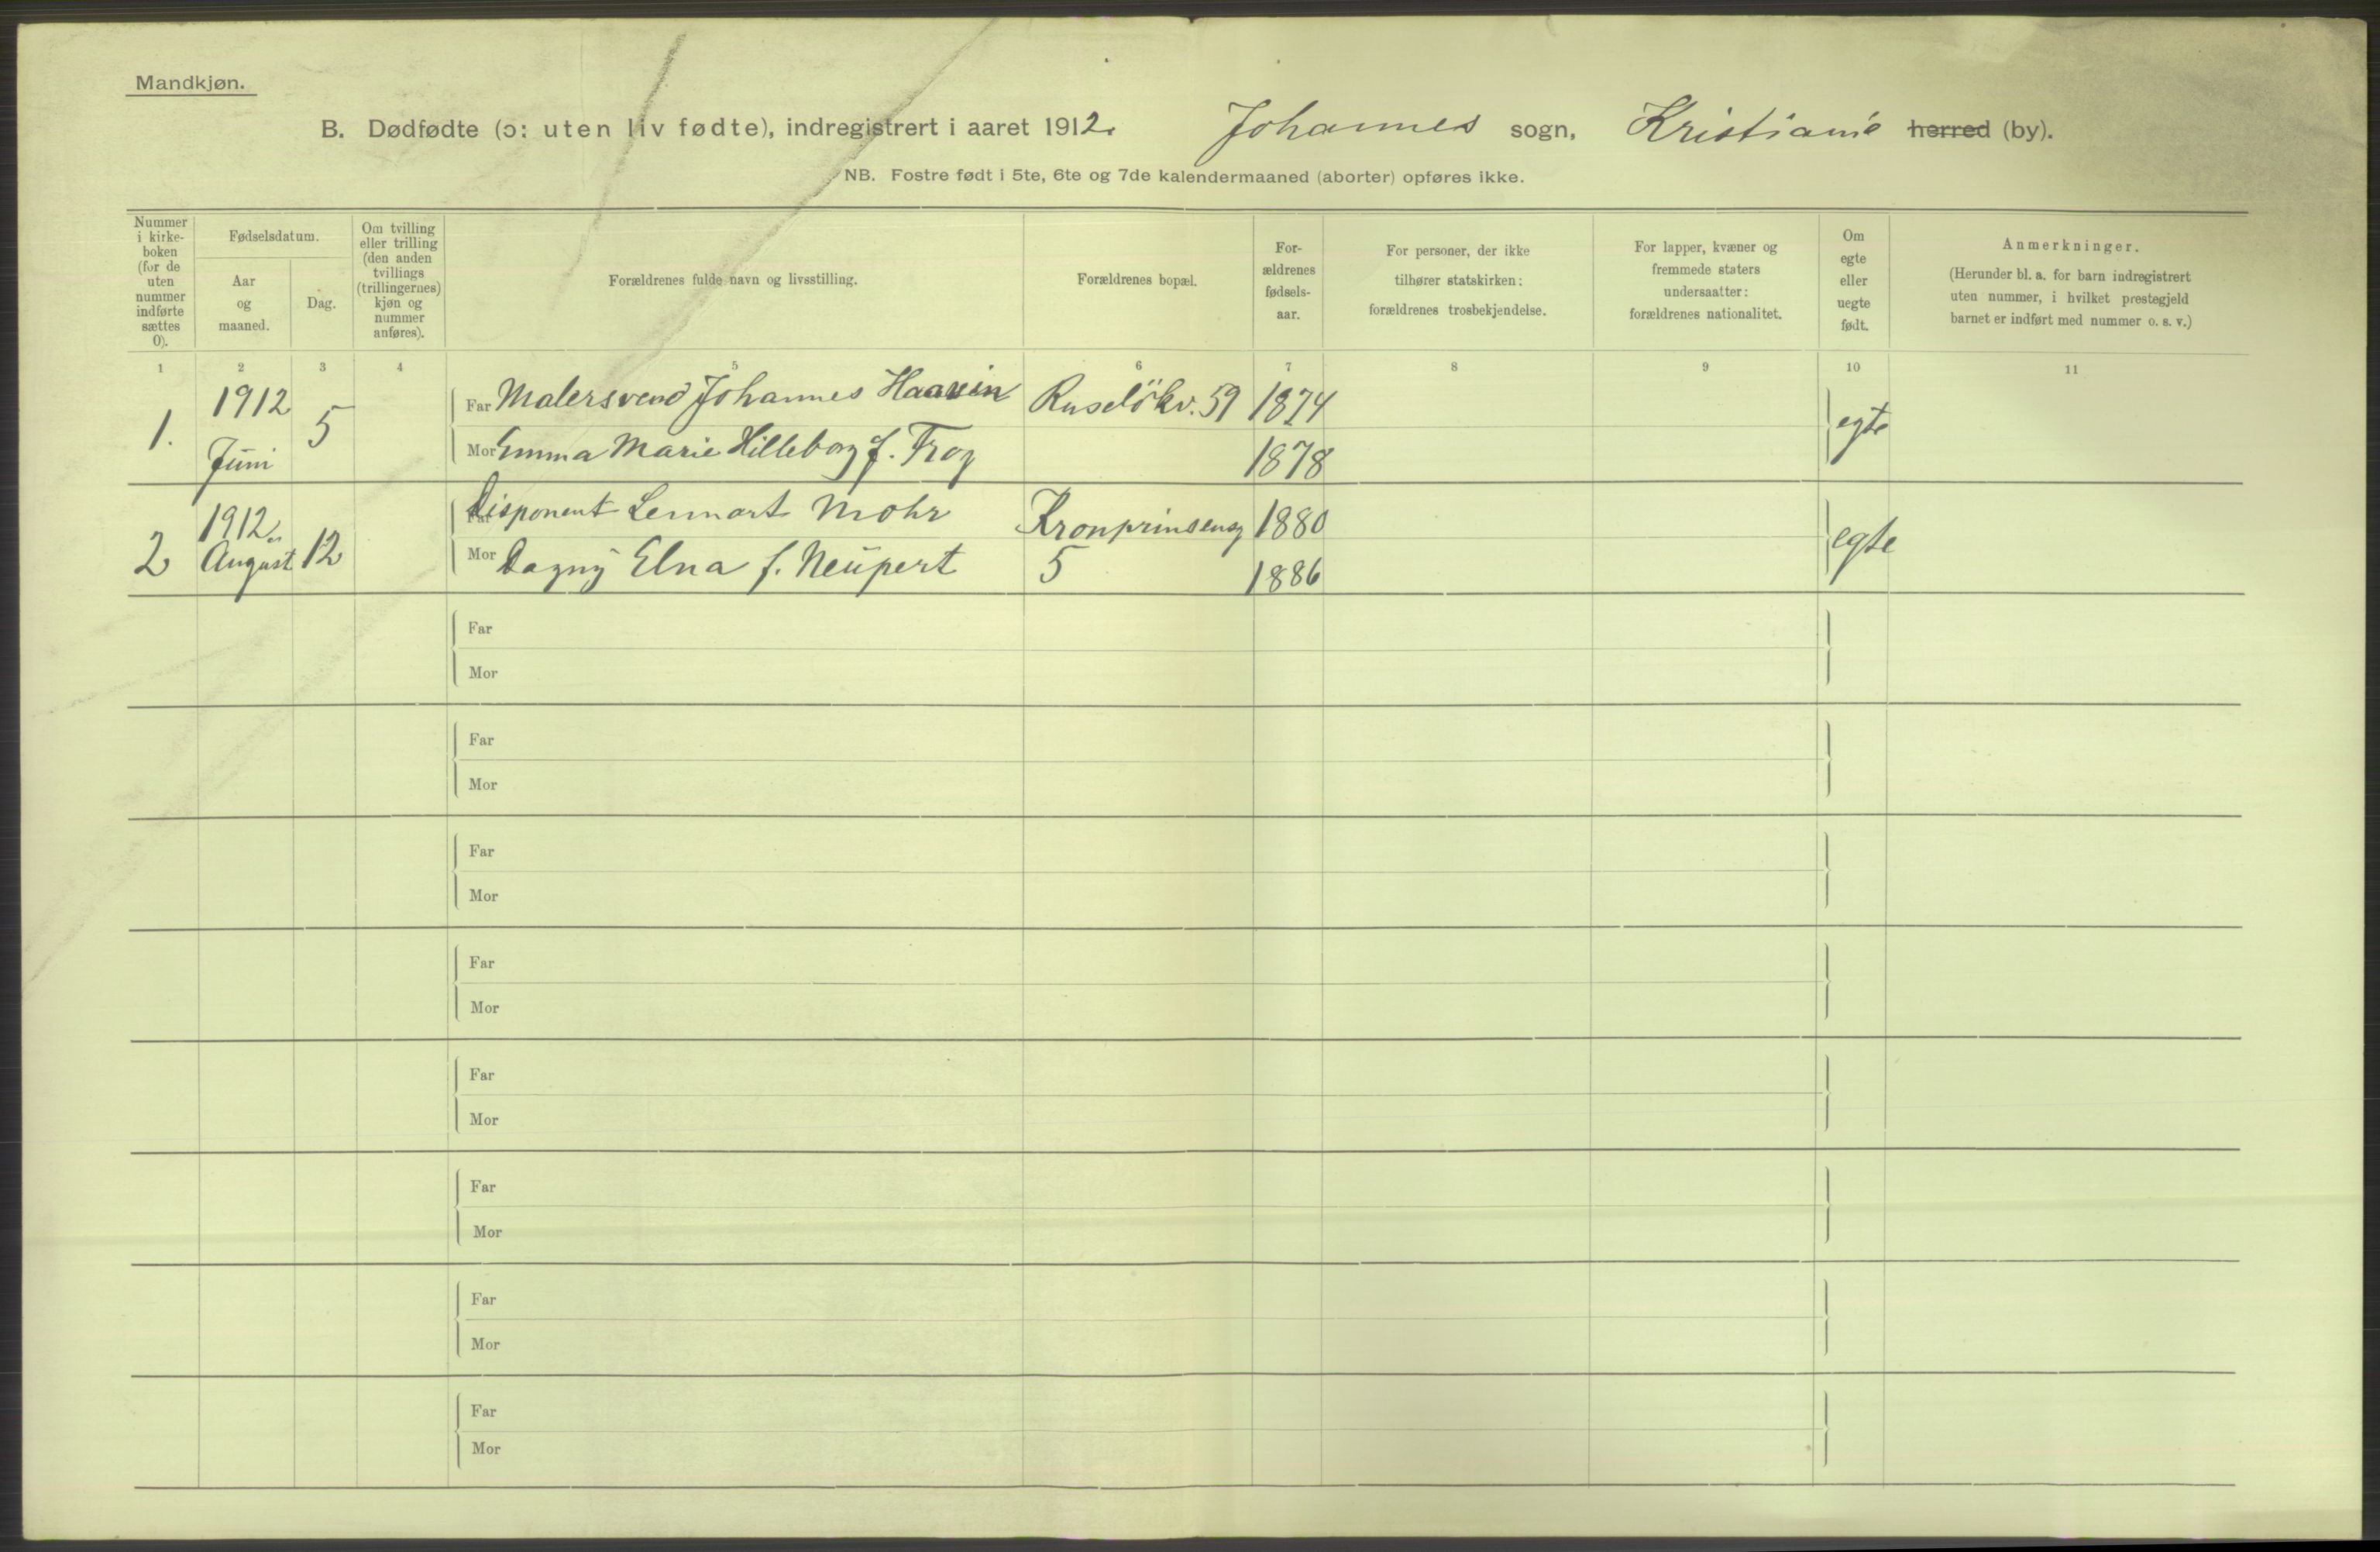 Mandkjøn.
B. Dødfødte (ɔ: uten liv fødte), indregistrert i aaret 1912. Johannes sogn, Kristiania herred (by).
NB. Fostre født i 5te, 6te og 7de kalendermaaned (aborter) opføres ikke.
Nummer i kirke-boken (for de uten nummer indførte sættes 0).
Fødselsdatum.
Aar og maaned.
Dag.
Om tvilling eller trilling (den anden tvillings (trillingernes) kjøn og nummer anføres).
Forældrenes fulde navn og livsstilling.
Forældrenes bopæl.
For-ældrenes fødsels-aar.
For personer, der ikke tilhører statskirken: forældrenes trosbekjendelse.
For lapper, kvæner og fremmede staters undersaatter: forældrenes nationalitet.
Om egte eller uegte født.
Anmerkninger.
(Herunder bl. a. for barn indregistrert uten nummer, i hvilket prestegjeld barnet er indført med nummer o. s. v.)
1 2 3 4 5 6 7 8 9 10 11
1. 1912 Juni 5
Far Malersvend Johannes Haavin Ruselökv. 59 1874 egte
Mor Emma Marie Hilleborg f. Frog 1878
2 1912 August 12
Far Disponent Lennart Mohr Kronprinseng 1880 egte
Mor Dagny Elna f. Neupert 5 1886
Far
Mor
Far
Mor
Far
Mor
Far
Mor
Far
Mor
Far
Mor
Far
Mor
Far
Mor